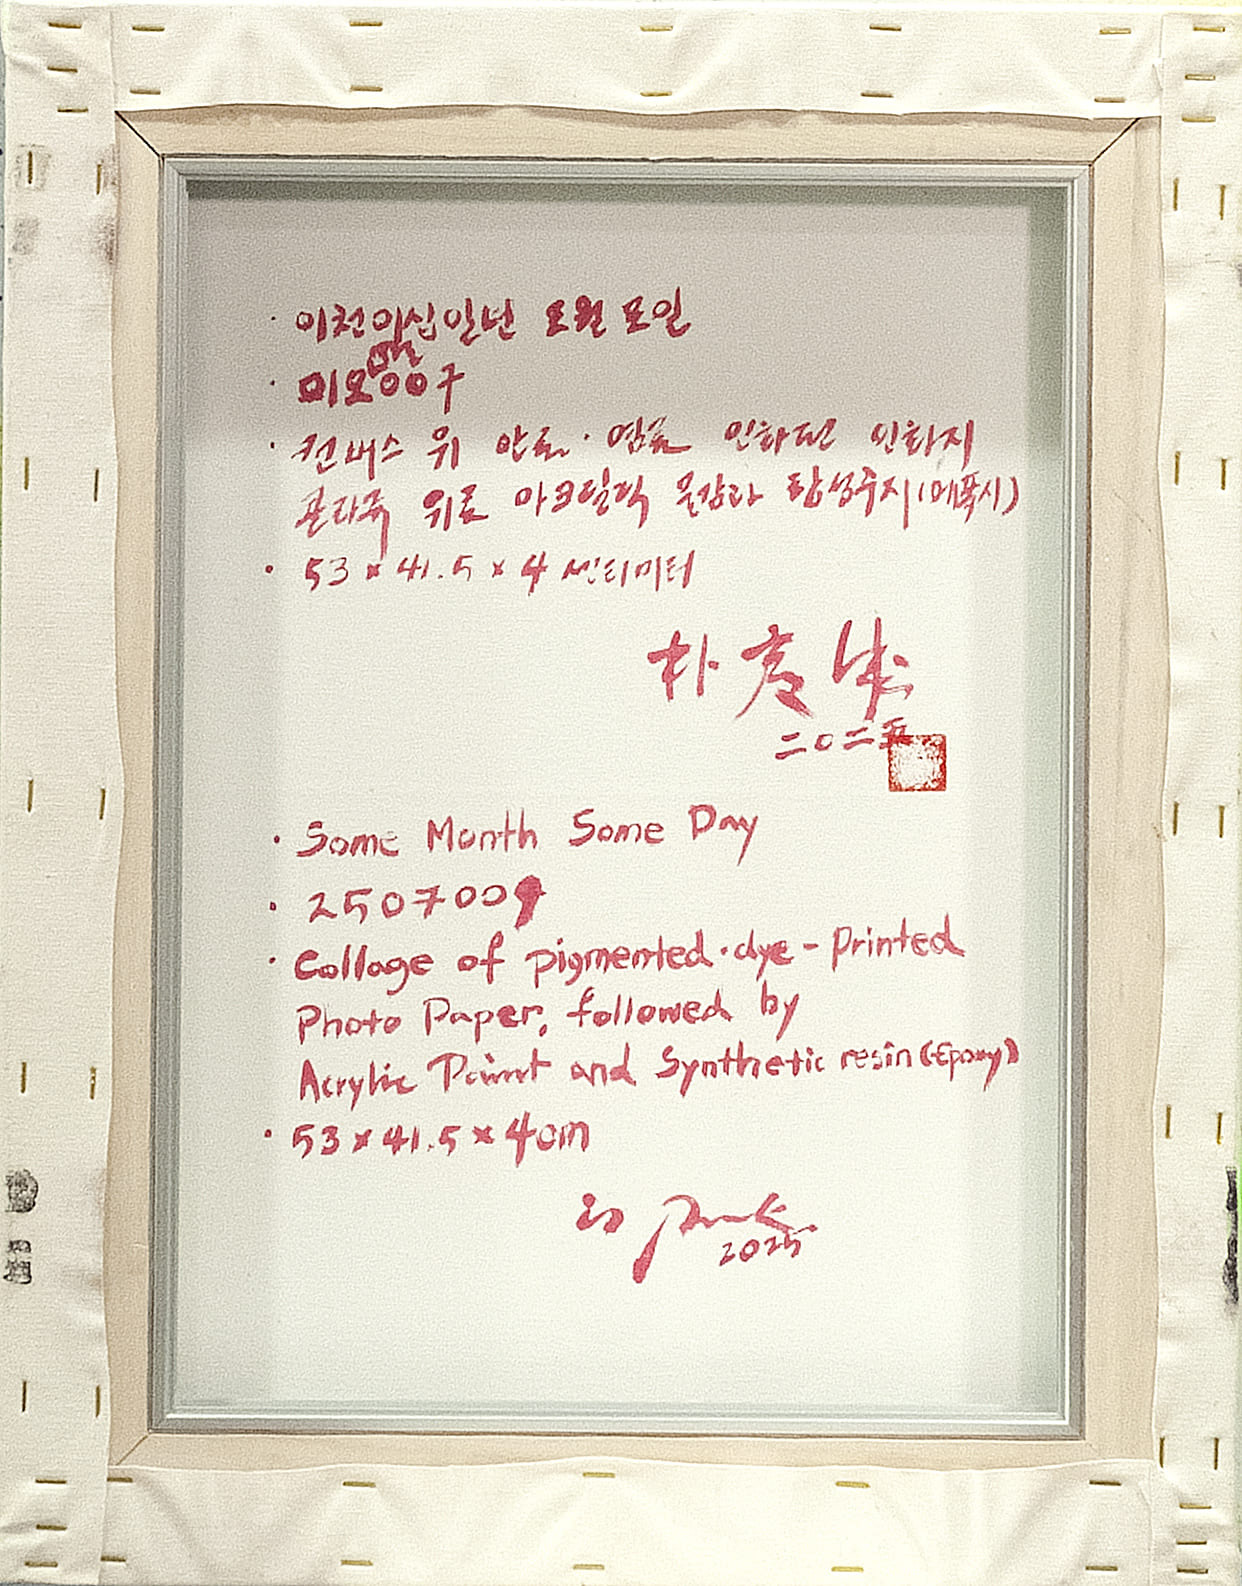 · 이천이십일년 모월 모일
· 미오 영영구
· 컨버스 위 안료·염료 인화된 인화지
콜라주 위로 아크릴릭 물감과 합성수지(에폭시)
· 53 x 41.5 x 4 센티미터
朴
二〇二五
· Some Month Some Day
· 2507009
· Collage of pigmented·dye-printed
Photo Paper, followed by
Acrylic Paint and Synthetic resin (Epoxy)
· 53 x 41.5 x 4cm
Park
2025